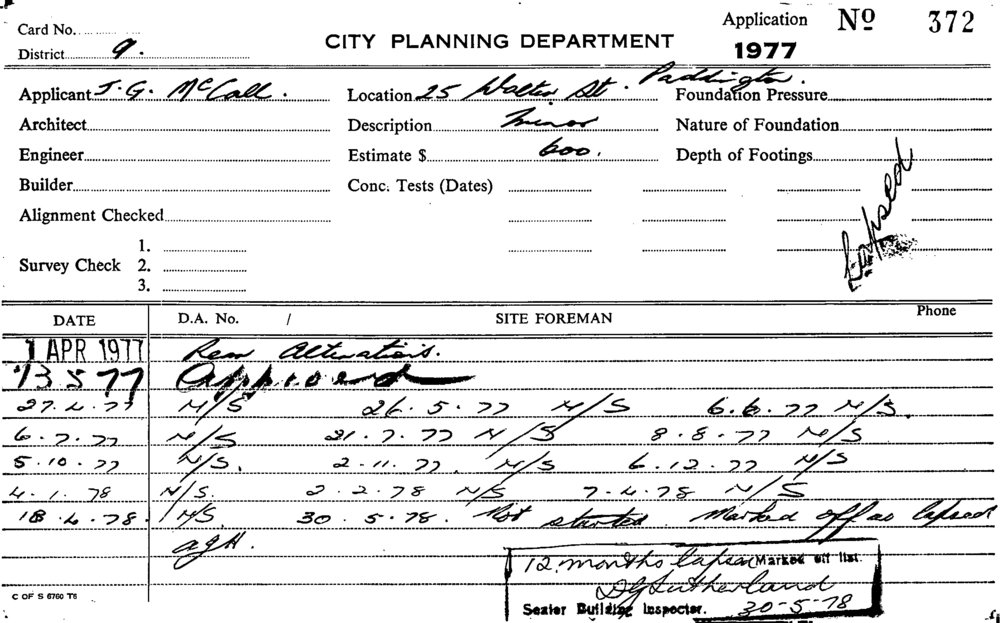 Card No.
District 9.
CITY PLANNING DEPARTMENT
Application Nº 372
1977
Applicant J. G. McCall. Location 25 Walter St. Paddington. Foundation Pressure
Architect Description Minor Nature of Foundation
Engineer Estimate $ 600. Depth of Footings
Builder Conc. Tests (Dates)
Alignment Checked
Lapsed
Survey Check 1.
2.
3.
DATE D.A. No. / SITE FOREMAN Phone
1 APR 1977 Rear Alterations.
13 5 77 Approved
27.4.77 N/S 26.5.77 N/S 6.6.77 N/S.
6.7.77 N/S 21.7.77 N/S 8.8.77 N/S
5.10.77 N/S. 2.11.77. N/S 6.12.77 N/S
4.1.78 N/S. 2.2.78 N/S 7.4.78 N/S
18.4.78. N/S. 30.5.78. Not started. Marked off as lapsed
AGH.
12 months lapsed Marked off list.
DG Sutherland
Senior Building Inspector. 30-5-78
C OF S 6760 T6